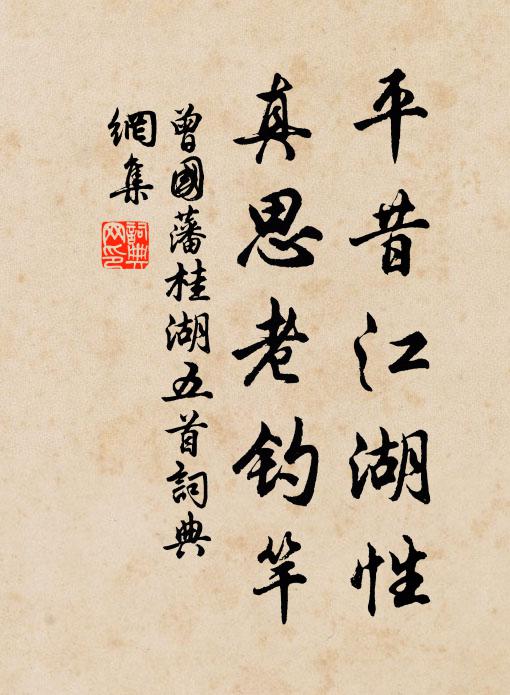 平昔江湖性
真思老钓竿
曾國藩桂湖五首詞典
網集
詞典
网印